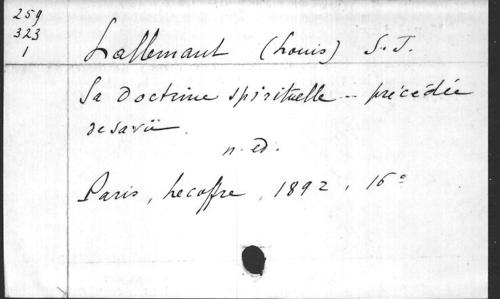 259
323
1
Lallemant (Louis) S.J.
La Doctrine spirituelle -- précédée
de sa vie.
n. ed.
Paris, Lecoffre, 1892, 16°